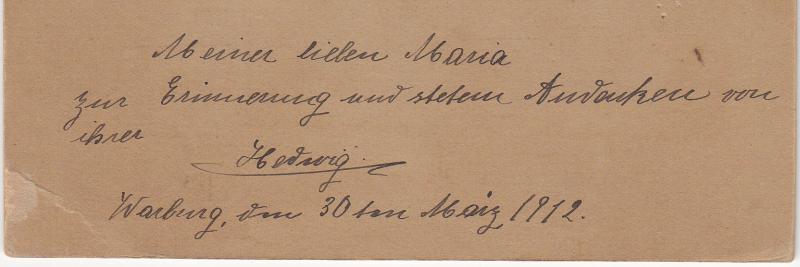 Meiner lieben Maria
zur Erinnerung und stetem Andenken von
ihrer
Hedwig.
Warburg, den 30ten März 1912.